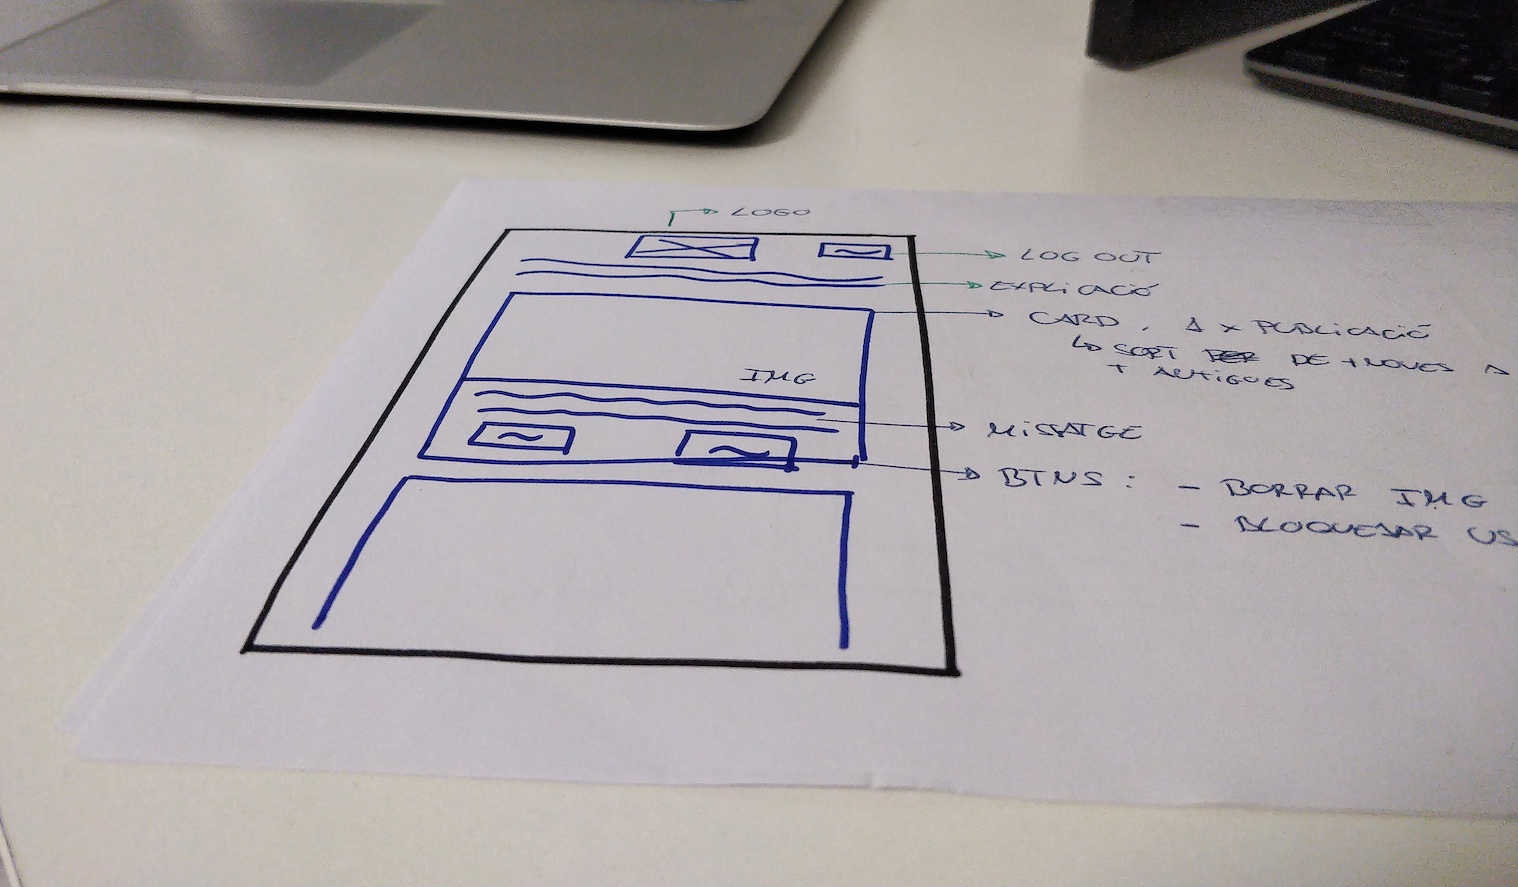 LOGO
LOG OUT
EXPLICACIÓ
CARD. 1 x PUBLICACIÓ
SORT DE + NOVES A
+ ANTIGUES
IMG
MISSATGE
BTNS: - BORRAR IMG
- BLOQUEJAR US